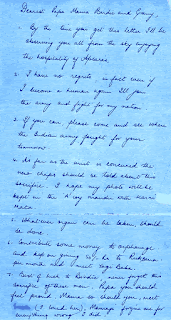 Dearest Papa, Mama, Birdie and Granny,
1. By the time you get this letter I'll be
observing you all from the sky enjoying
the hospitality of Apsaras.
2. I have no regrets, in fact even if
I become a human again I'll join
the army and fight for my nation.
3. If you can, please come and see where
the Indian army fought for your
tomorrow.
4. As far as the unit is concerned the
new chaps should be told about this
sacrifice. I hope my photo will be
kept in the A coy mandir with Karni
Mata.
5. Whatever organ can be taken, should
be done.
6. Contribute some money to orphanage
and keep on giving to
per month, and meet Yogi Baba.
7. Best of luck to Birdie, never forget this
sacrifice of these men. Papa you should
feel proud. Mama so should you, meet
(I loved her). Mamaji forgive me for
everything wrong I did.